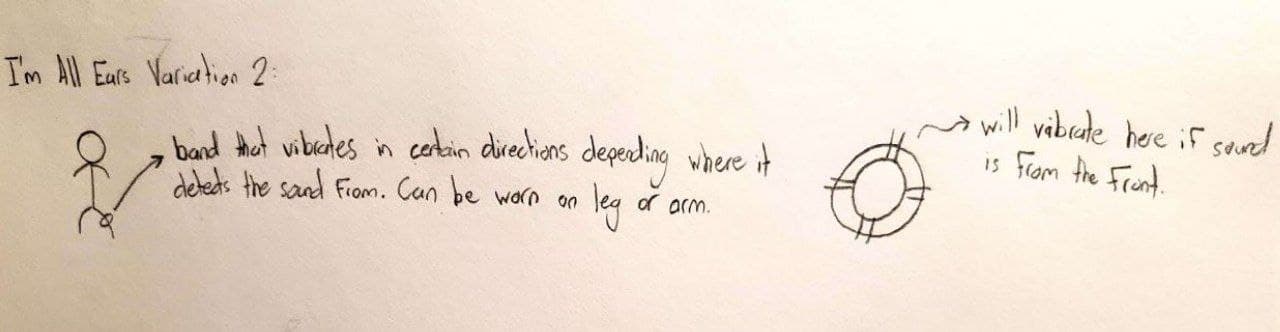 I'm All Ears Variation 2:
band that vibrates in certain directions depending where it
detects the sound from. Can be worn on leg or arm.
will vibrate here if sound
is from the front.